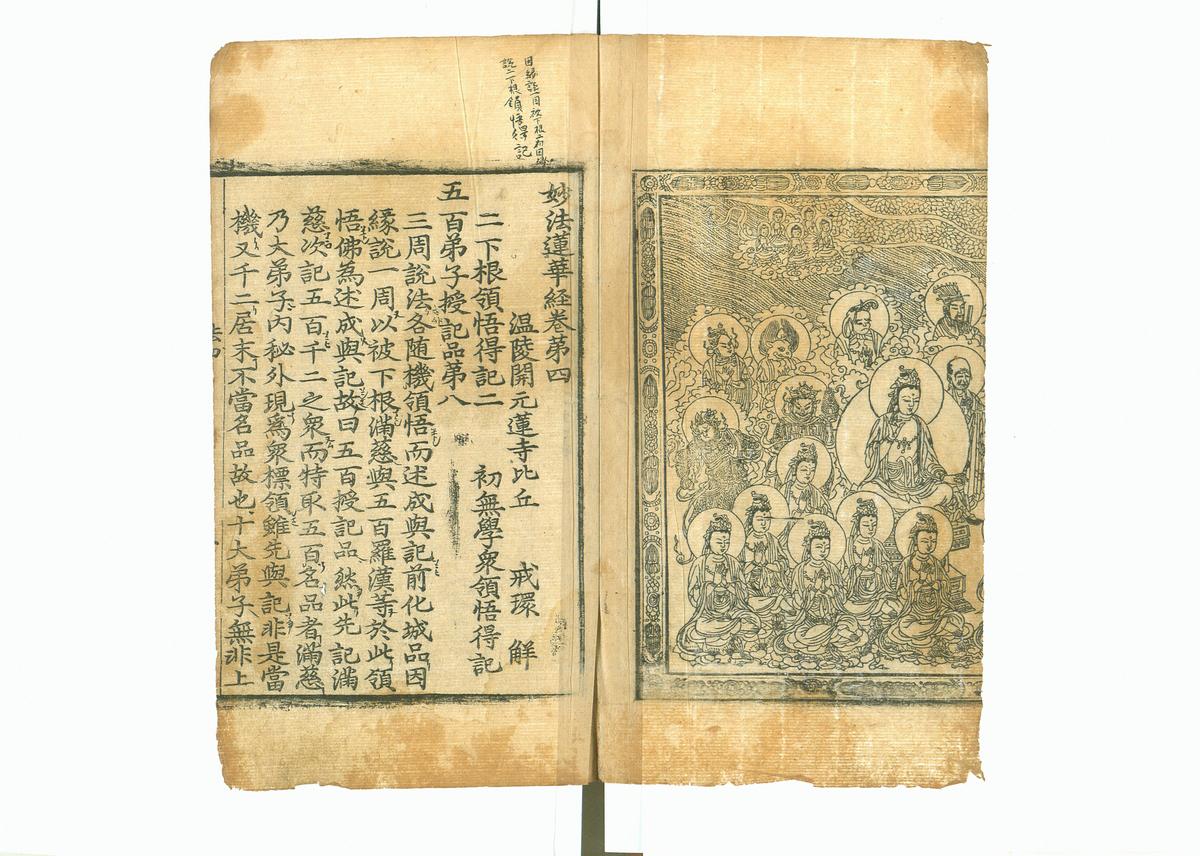 妙法蓮華経巻第四
温陵開元蓮寺比丘 戒環 解
二下根領悟得記二 初無學衆領悟得記
五百弟子授記品第八
三周說法各随機領悟而述成與記前化城品因
緣說一周以被下根滿慈與五百羅漢等於此領
悟佛為述成與記故曰五百授記品然此先記滿
慈次記五百千二之衆而特取五百名品者滿慈
乃大弟子內秘外現爲衆標領雖先與記非是當
機又千二居末不當名品故也十大弟子無非上
說二下根領悟得記